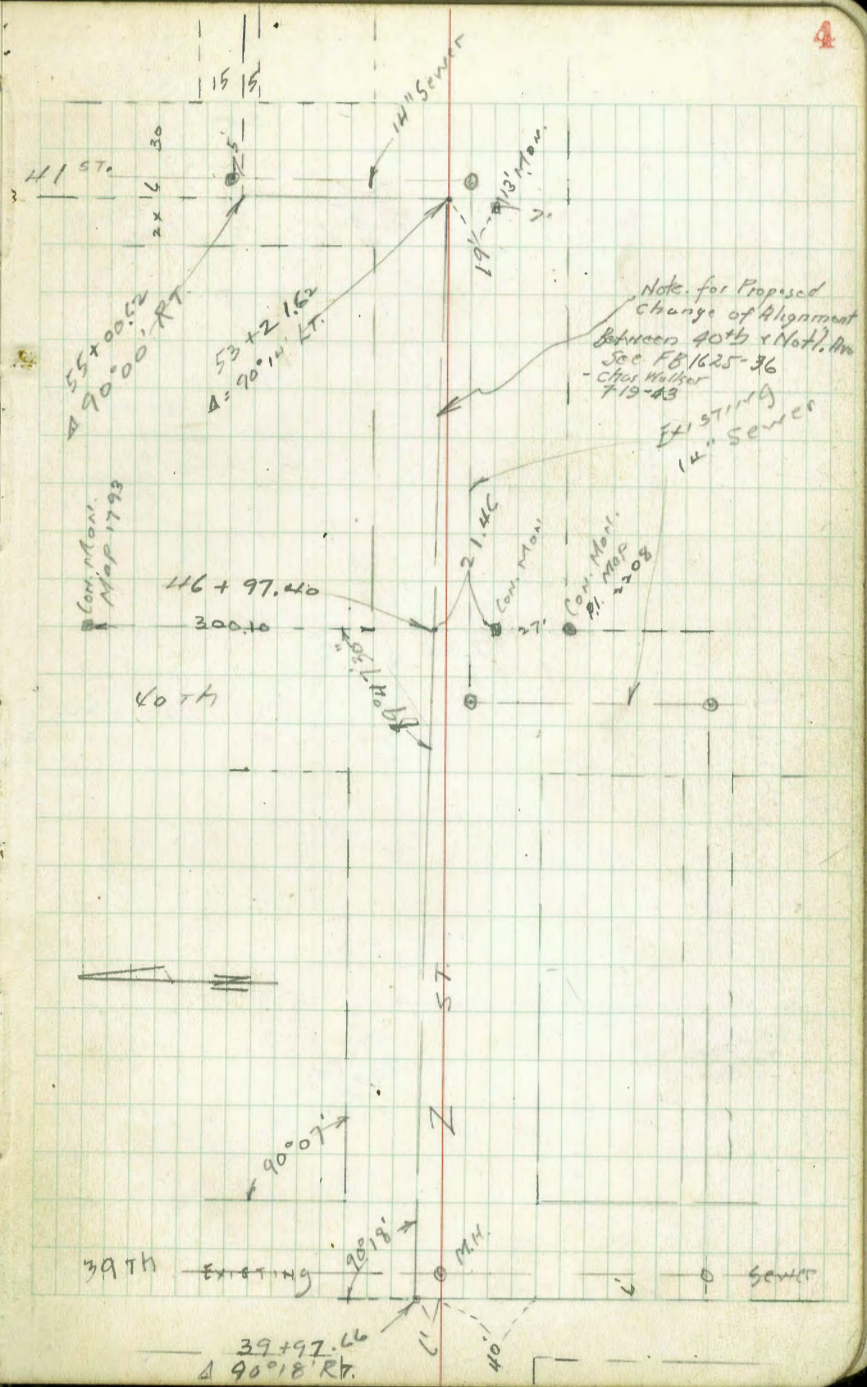 4
15 15
14" Sewer
41 ST.
2x 16 30
5'
13' Mon.
19'
7.
55+00.62
Δ 90°00' RT.
53+21.62
Δ = 90°14' LT.
Note for Proposed
Change of Alignment
Between 40th & Natl. Ave
See FB 1625-36
- Chas Walker
7-19-43
Existing
14" Sewer
Con. Mon.
Map 1793
21.46
Con. Mon.
Con. Mon.
P.I. Map
2208
46 + 97.40
300.10
27.
89°47'30"
40 TH
N
Z ST.
90°07'
90°18'
M.H.
39 TH Existing 6' Sewer
39+97.66
Δ 90°18' RT.
6'
40'